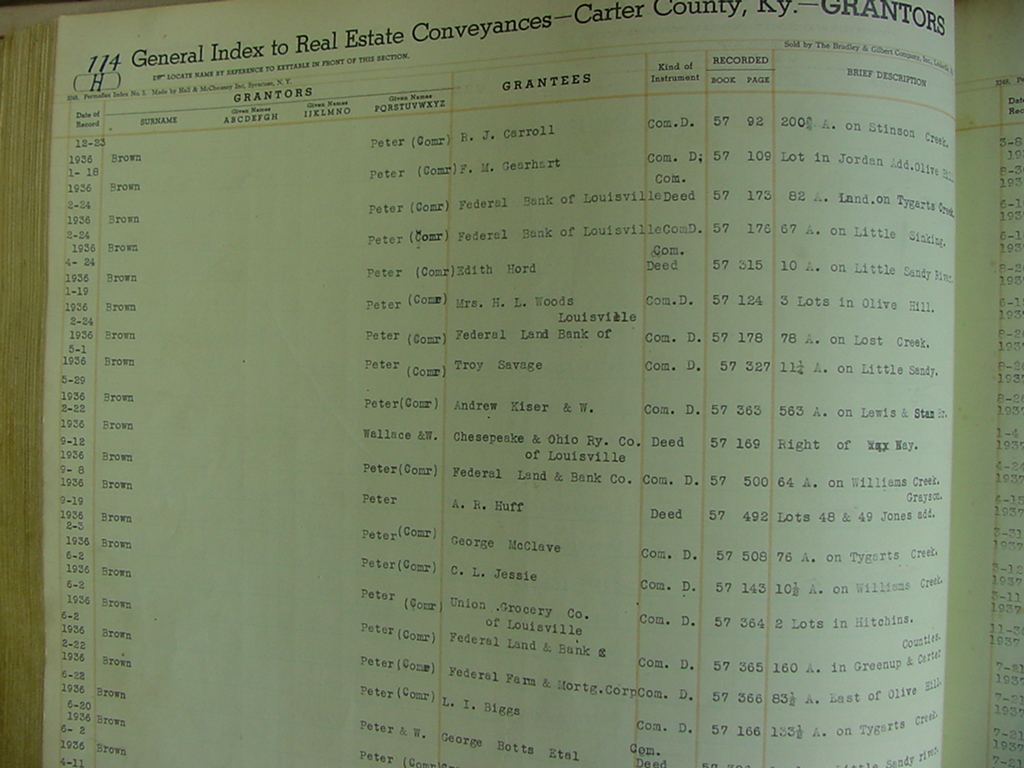 114 General Index to Real Estate Conveyances—Carter County, Ky.—GRANTORS
H
LOCATE NAME BY REFERENCE TO KEYTABLE IN FRONT OF THIS SECTION.
Sold by The Bradley & Gilbert Company, Inc.
Made by Hall & McChesney Inc. Syracuse, N. Y.
Date of Record
GRANTORS
SURNAME
Given Names ABCDEFGH
Given Names IJKLMNO
Given Names PQRSTUVWXYZ
GRANTEES
Kind of Instrument
RECORDED
BOOK PAGE
BRIEF DESCRIPTION
12-23
1936 Brown Peter (Comr) R. J. Carroll Com.D. 57 92 200 A. on Stinson Creek.
1- 18
1936 Brown Peter (Comr) F. M. Gearhart Com. D; 57 109 Lot in Jordan Add.Olive Hill
2-24 Com.
1936 Brown Peter (Comr) Federal Bank of Louisville Deed 57 173 82 A. Land.on Tygarts Creek
2-24
1936 Brown Peter (Comr) Federal Bank of Louisville ComD. 57 176 67 A. on Little Sinking.
4- 24 Com.
1936 Brown Peter (Comr) Edith Hord Deed 57 315 10 A. on Little Sandy River
1-19
1936 Brown Peter (Comr) Mrs. H. L. Woods Com.D. 57 124 3 Lots in Olive Hill.
2-24 Louisville
1936 Brown Peter (Comr) Federal Land Bank of Com. D. 57 178 78 A. on Lost Creek.
5-1
1936 Brown Peter (Comr) Troy Savage Com. D. 57 327 11¼ A. on Little Sandy.
5-29
1936 Brown Peter(Comr) Andrew Kiser & W. Com. D. 57 363 563 A. on Lewis & Br.
2-22
1936 Brown Wallace &W. Chesepeake & Ohio Ry. Co. Deed 57 169 Right of Way.
9-12 of Louisville
1936 Brown Peter(Comr) Federal Land & Bank Co. Com. D. 57 500 64 A. on Williams Creek.
9- 8 Grayson.
1936 Brown Peter A. R. Huff Deed 57 492 Lots 48 & 49 Jones add.
9-19
1936 Brown Peter(Comr) George McClave Com. D. 57 508 76 A. on Tygarts Creek.
2-3
1936 Brown Peter(Comr) C. L. Jessie Com. D. 57 143 10½ A. on Williams Creek.
6-2
1936 Brown Peter (Comr) Union .Grocery Co. Com. D. 57 364 2 Lots in Hitchins.
6-2 of Louisville Counties.
1936 Brown Peter(Comr) Federal Land & Bank Com. D. 57 365 160 A. in Greenup & Carter
6-2
1936 Brown Peter(Comr) Federal Farm & Mortg.Corp Com. D. 57 366 83½ A. East of Olive Hill.
2-22
1936 Brown Peter(Comr) L. I. Biggs Com. D. 57 166 133½ A. on Tygarts Creek.
6-22
1936 Brown Peter & W. George Botts Etal Com. Deed Little Sandy river
6-20
1936 Brown Peter (Comr)
6- 2
1936 Brown
4-11